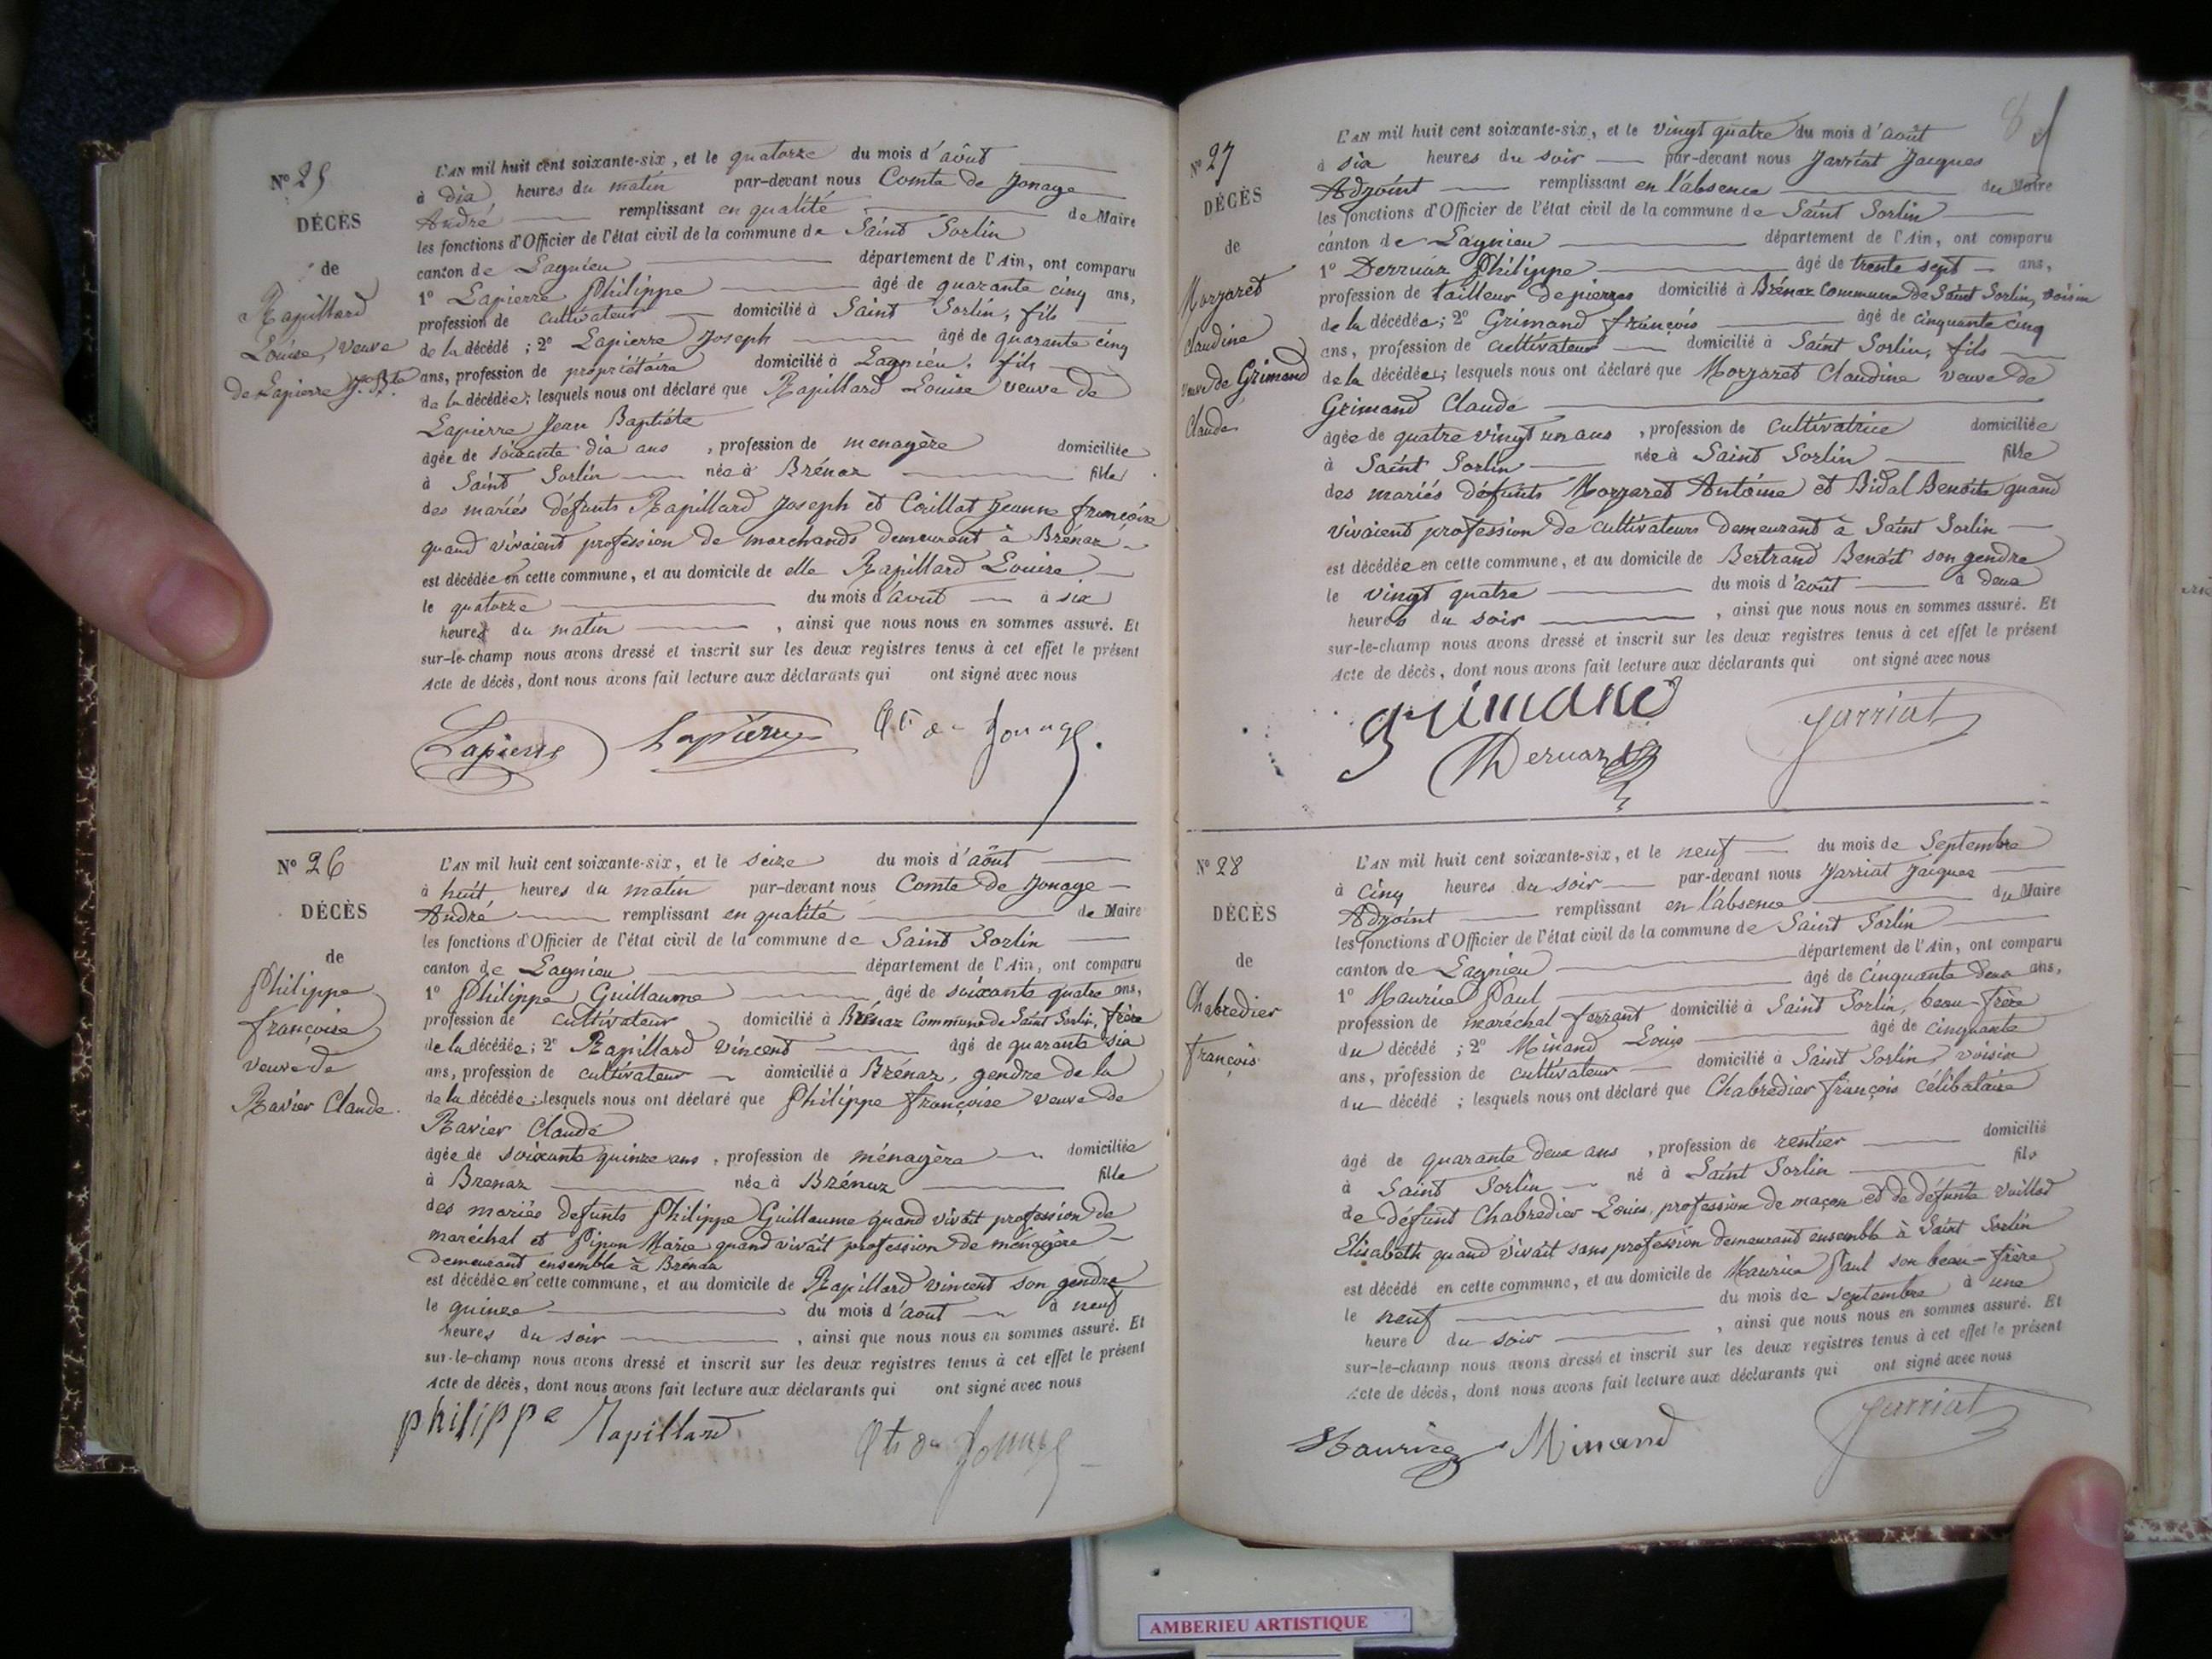 N° 25
DÉCÈS
de
Rapillard
Louise, veuve
de Lapierre J. Bte
L'AN mil huit cent soixante-six, et le quatorze du mois d'août
à dix heures du matin par-devant nous Comte de Jonage
André remplissant en qualité de Maire
les fonctions d'Officier de l'état civil de la commune de Saint Sorlin
canton de Lagnieu département de l'Ain, ont comparu
1° Lapierre Philippe âgé de quarante cinq ans,
profession de cultivateur domicilié à Saint Sorlin, fils
de la décédé ; 2° Lapierre Joseph âgé de quarante cinq
ans, profession de propriétaire domicilié à Lagnieu, fils
de la décédée; lesquels nous ont déclaré que Rapillard Louise veuve de
Lapierre Jean Baptiste
âgée de soixante dix ans , profession de menagère domiciliée
à Saint Sorlin née à Brénaz fille
des mariés défunts Rapillard Joseph et Coillat Jeanne françoise
quand vivaient profession de marchands demeurant à Brénaz
est décédée en cette commune, et au domicile de elle Rapillard Louise
le quatorze du mois d'aout à six
heures du matin , ainsi que nous nous en sommes assuré. Et
sur-le-champ nous avons dressé et inscrit sur les deux registres tenus à cet effet le présent
Acte de décès, dont nous avons fait lecture aux déclarants qui ont signé avec nous
Lapierre Lapierre Cte de Jonage
N° 26
DÉCÈS
de
Philippe
françoise
veuve de
Ravier Claude
L'AN mil huit cent soixante-six, et le seize du mois d'août
à huit heures du matin par-devant nous Comte de Jonage
André remplissant en qualité de Maire
les fonctions d'Officier de l'état civil de la commune de Saint Sorlin
canton de Lagnieu département de l'Ain, ont comparu
1° Philippe Guillaume âgé de soixante quatre ans,
profession de cultivateur domicilié à Brénaz Commune de Saint Sorlin, frère
de la décédée; 2° Rapillard Vincent âgé de quarante six
ans, profession de cultivateur domicilié à Brénaz, gendre de la
de la décédée; lesquels nous ont déclaré que Philippe françoise veuve de
Ravier Claude
âgée de soixante quinze ans , profession de ménagère domiciliée
à Brenaz née à Brénaz fille
des mariés defunts Philippe Guillaume quand vivait profession de
maréchal et Pipon Marie quand vivait profession de ménagère
demeurant ensemble à Brénaz
est décédée en cette commune, et au domicile de Rapillard Vincent son gendre
le quinze du mois d'aout à neuf
heures du soir , ainsi que nous nous en sommes assuré. Et
sur-le-champ nous avons dressé et inscrit sur les deux registres tenus à cet effet le présent
Acte de décès, dont nous avons fait lecture aux déclarants qui ont signé avec nous
philippe Rapillard Cte de Jonage
N° 27
DÉCÈS
de
Morzaret
Claudine
veuve de Grimand
Claude
L'AN mil huit cent soixante-six, et le vingt quatre du mois d'août
à six heures du soir par-devant nous Jarriat Jacques
Adjoint remplissant en l'absence du Maire
les fonctions d'Officier de l'état civil de la commune de Saint Sorlin
canton de Lagnieu département de l'Ain, ont comparu
1° Derruaz Philippe âgé de trente sept ans,
profession de tailleur de pierres domicilié à Brénaz Commune de Saint Sorlin, voisin
de la décédée; 2° Grimand françois âgé de cinquante cinq
ans, profession de cultivateur domicilié à Saint Sorlin, fils
de la décédée; lesquels nous ont déclaré que Morzaret Claudine veuve de
Grimand Claude
âgée de quatre vingt un ans , profession de cultivatrice domiciliée
à Saint Sorlin née à Saint Sorlin fille
des mariés défunts Morzaret Antoine et Bidal Benoite quand
vivaient profession de cultivateurs demeurant à Saint Sorlin
est décédée en cette commune, et au domicile de Bertrand Benoît son gendre
le vingt quatre du mois d'août à deux
heures du soir , ainsi que nous nous en sommes assuré. Et
sur-le-champ nous avons dressé et inscrit sur les deux registres tenus à cet effet le présent
Acte de décès, dont nous avons fait lecture aux déclarants qui ont signé avec nous
grimand
Deruaz Jarriat
N° 28
DÉCÈS
de
Chabredier
françois
L'AN mil huit cent soixante-six, et le neuf du mois de Septembre
à cinq heures du soir par-devant nous Jarriat Jacques
Adjoint remplissant en l'absence du Maire
les fonctions d'Officier de l'état civil de la commune de Saint Sorlin
canton de Lagnieu département de l'Ain, ont comparu
1° Maurice Paul âgé de Cinquante deux ans,
profession de maréchal ferrant domicilié à Saint Sorlin, beau-frère
du décédé ; 2° Minand Louis âgé de cinquante
ans, profession de cultivateur domicilié à Saint Sorlin, voisin
du décédé ; lesquels nous ont déclaré que Chabredier françois célibataire
âgé de quarante deux ans , profession de rentier domicilié
à Saint Sorlin né à Saint Sorlin fils
de défunt Chabredier Louis, profession de maçon et de défunte Vuillod
Elisabeth quand vivait sans profession demeurant ensemble à Saint Sorlin
est décédé en cette commune, et au domicile de Maurice Paul son beau-frère
le neuf du mois de septembre à une
heure du soir , ainsi que nous nous en sommes assuré. Et
sur-le-champ nous avons dressé et inscrit sur les deux registres tenus à cet effet le présent
Acte de décès, dont nous avons fait lecture aux déclarants qui ont signé avec nous
Maurice Minand Jarriat
AMBERIEU ARTISTIQUE